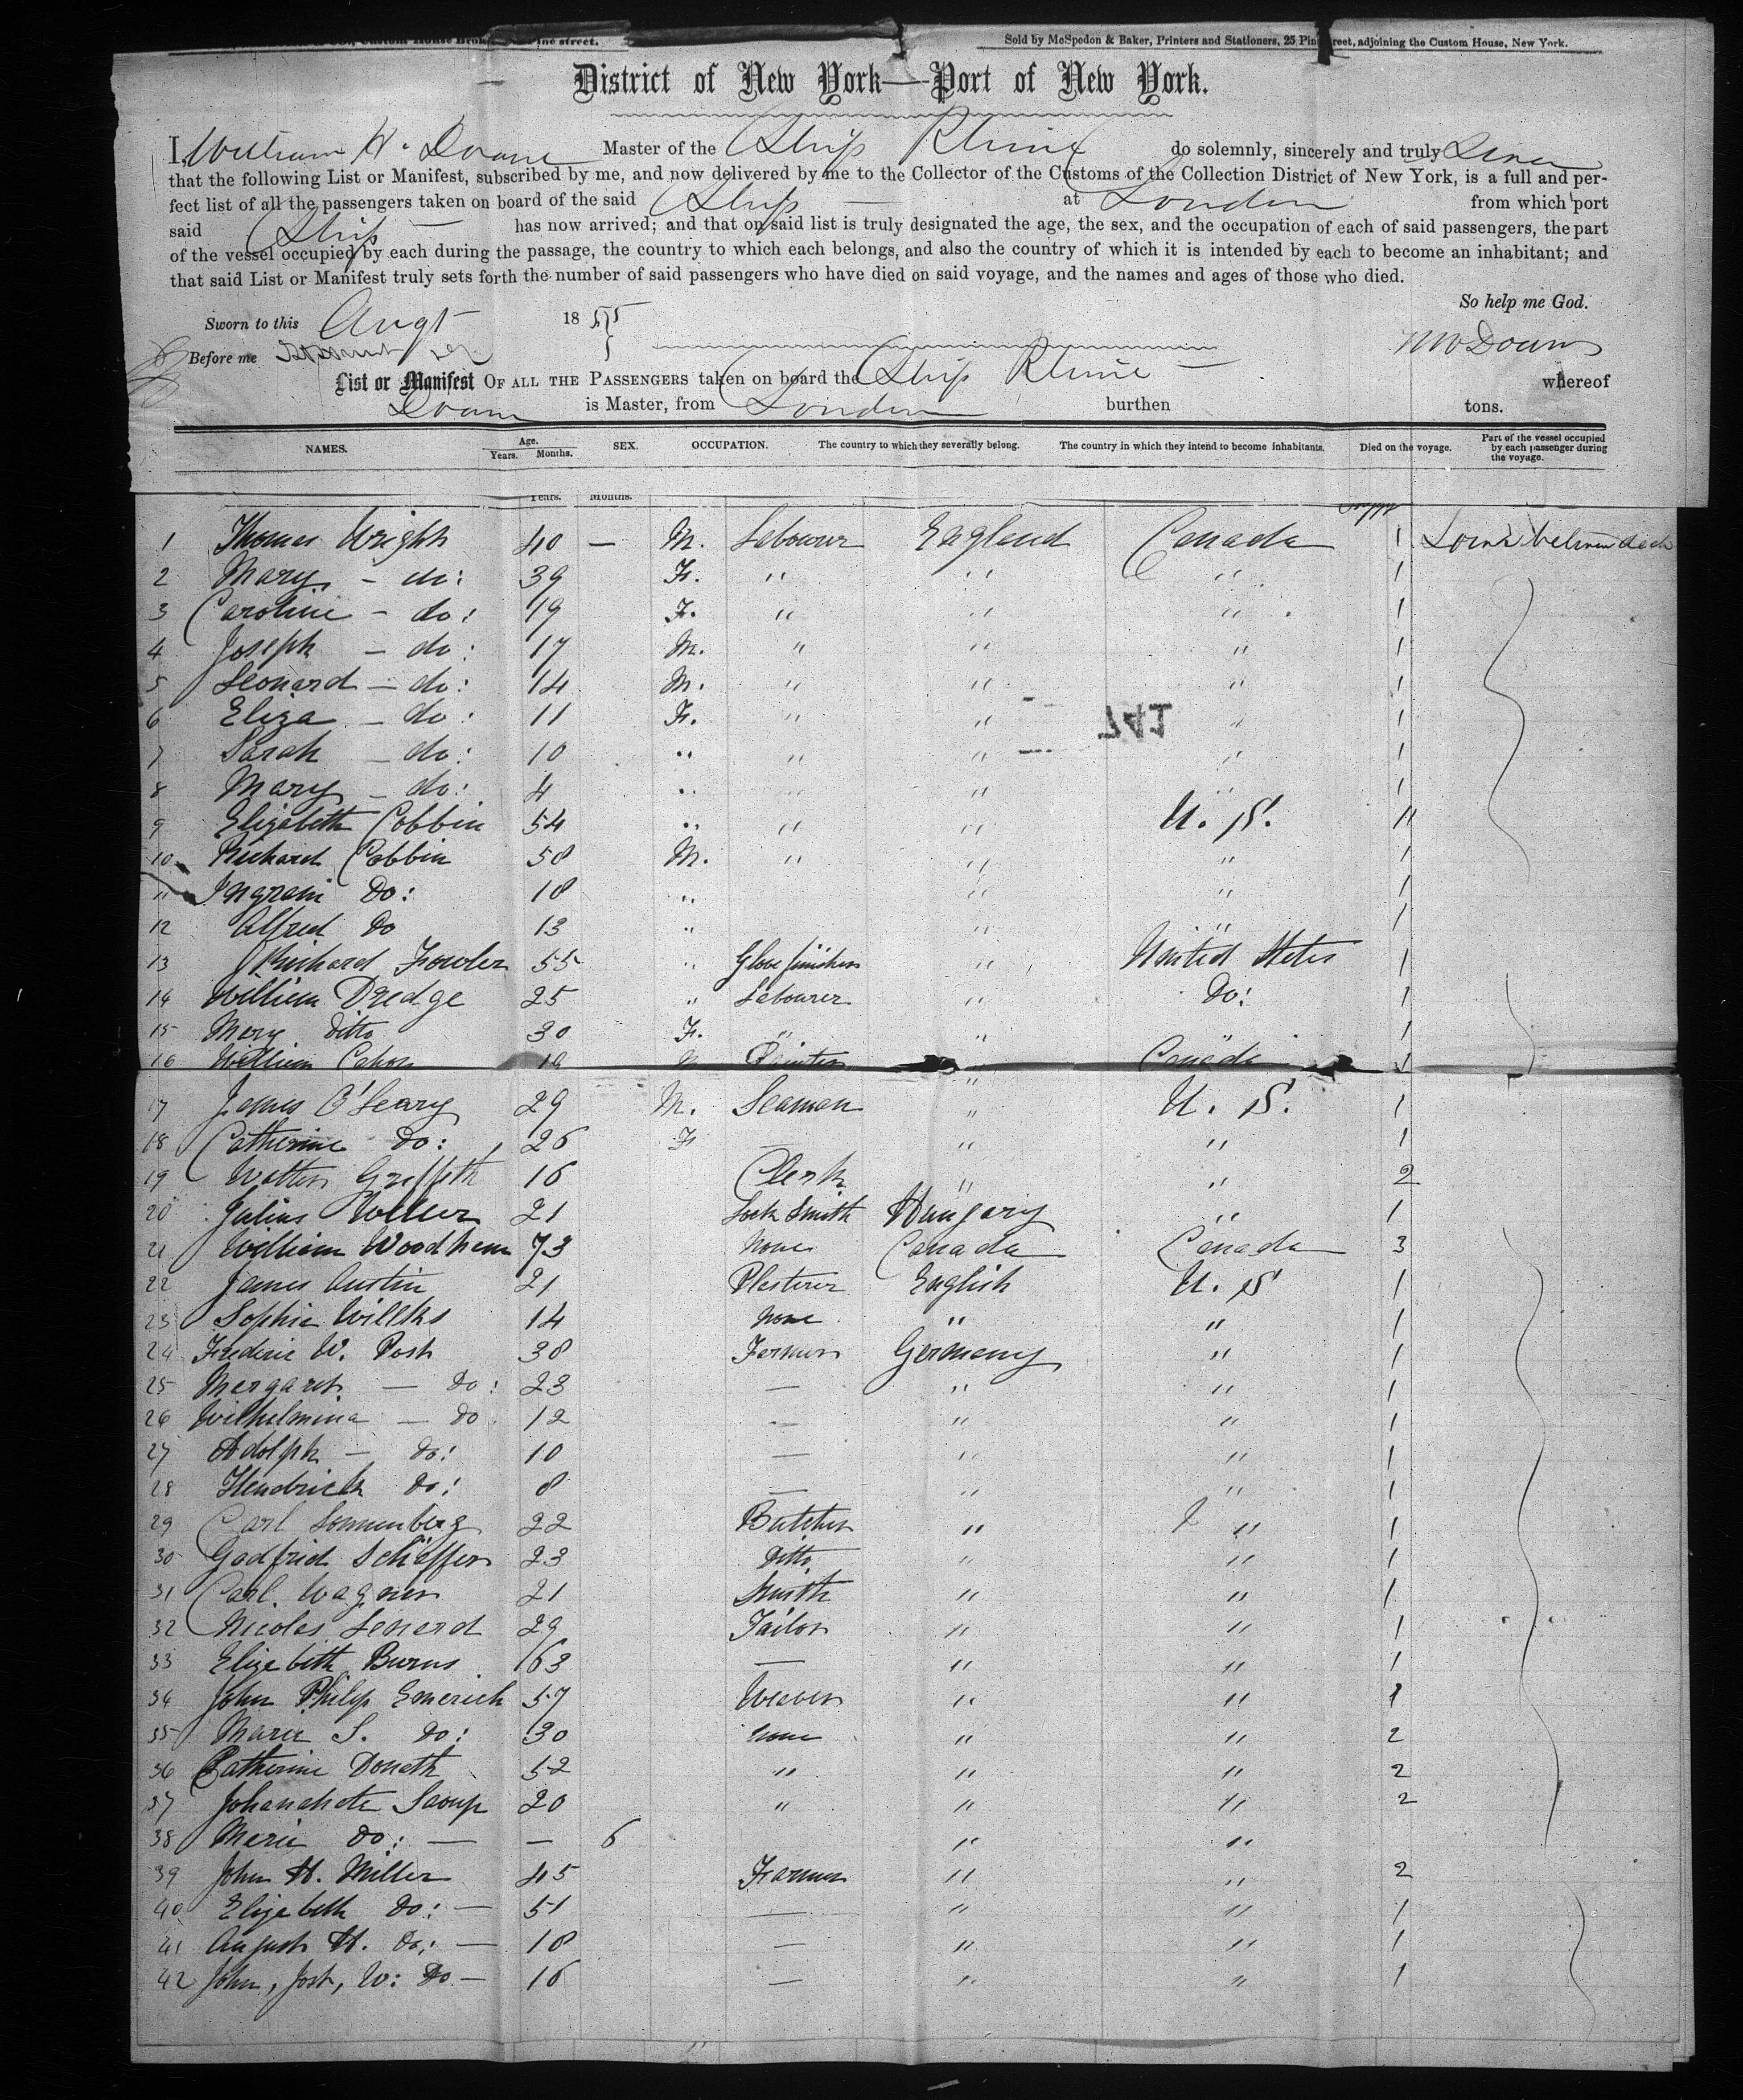 Custom House Bro Pine street. Sold by McSpedon & Baker, Printers and Stationers, 25 Pine street, adjoining the Custom House, New York.
District of New York—Port of New York.
I, William H. Doane Master of the Ship Rhine do solemnly, sincerely and truly
that the following List or Manifest, subscribed by me, and now delivered by me to the Collector of the Customs of the Collection District of New York, is a full and per-
fect list of all the passengers taken on board of the said Ship at London from which port
said Ship has now arrived; and that on said list is truly designated the age, the sex, and the occupation of each of said passengers, the part
of the vessel occupied by each during the passage, the country to which each belongs, and also the country of which it is intended by each to become an inhabitant; and
that said List or Manifest truly sets forth the number of said passengers who have died on said voyage, and the names and ages of those who died.
So help me God.
Sworn to this Augt 1855
Before me Doane
List or Manifest OF ALL THE PASSENGERS taken on board the Ship Rhine whereof
Doane is Master, from London burthen tons.
NAMES. Age. Years. Months. SEX. OCCUPATION. The country to which they severally belong. The country in which they intend to become inhabitants. Died on the voyage. Part of the vessel occupied by each passenger during the voyage.
Years. Months.
1 Thomas Wright 40 — M. Labourer England Canada 1 between deck
2 Mary - do: 39 F. " " " 1
3 Caroline - do: 19 F. " " " 1
4 Joseph - do: 17 M. " " " 1
5 Leonard - do: 14 M. " " " 1
6 Eliza - do: 11 F. " " " 1
741
7 Sarah - do: 10 " " " " 1
8 Mary - do: 4 " " " " 1
9 Elizabeth Cobbin 54 " " " U.S. 11
10 Richard Cobbin 58 M. " " " 1
11 Ingram Do: 18 " " " 1
12 Alfred Do 13 " " " 1
13 Richard Fowler 55 " Glove finisher " United States 1
14 William Dredge 25 " Labourer " Do: 1
15 Mary Ditto 30 F. " " " 1
16 William 19 M Painter " Canada 1
17 James O'Leary 29 M. Seaman " U.S. 1
18 Catherine Do: 26 F — " " 1
19 Walter Griffith 16 Clerk " " 2
20 Julius 21 Lock Smith Hungary " 1
21 William Woodham 73 None Canada Canada 3
22 James Austin 21 Plasterer English U.S 1
23 Sophia Willks 14 None " " 1
24 Frederic W. Post 38 Farmer Germany " 1
25 Margaret — Do: 23 — " " 1
26 Wilhelmina — Do 12 — " " 1
27 Adolph — Do: 10 — " " 1
28 Hendrick Do: 8 — " " 1
29 Carl Sonnenberg 22 Butcher " " 1
30 Godfrid Schäffer 23 Ditto " " 1
31 Carl Wagner 21 Smith " " 1
32 Nicolas Lenard 29 Tailor " " 1
33 Elizabeth Burns 63 — " " 1
34 John Philip Emerich 57 Weaver " " 1
35 Marie S. Do: 30 None " " 2
36 Catherine Donath 52 " " " 2
37 20 " " " 2
38 Marie Do: — — 6 " "
39 John H. Miller 45 Farmer " " 2
40 Elizabeth Do: — 51 — " " 1
41 August H. Do: — 18 — " " 1
42 John, Jost, W: Do — 16 — " " 1